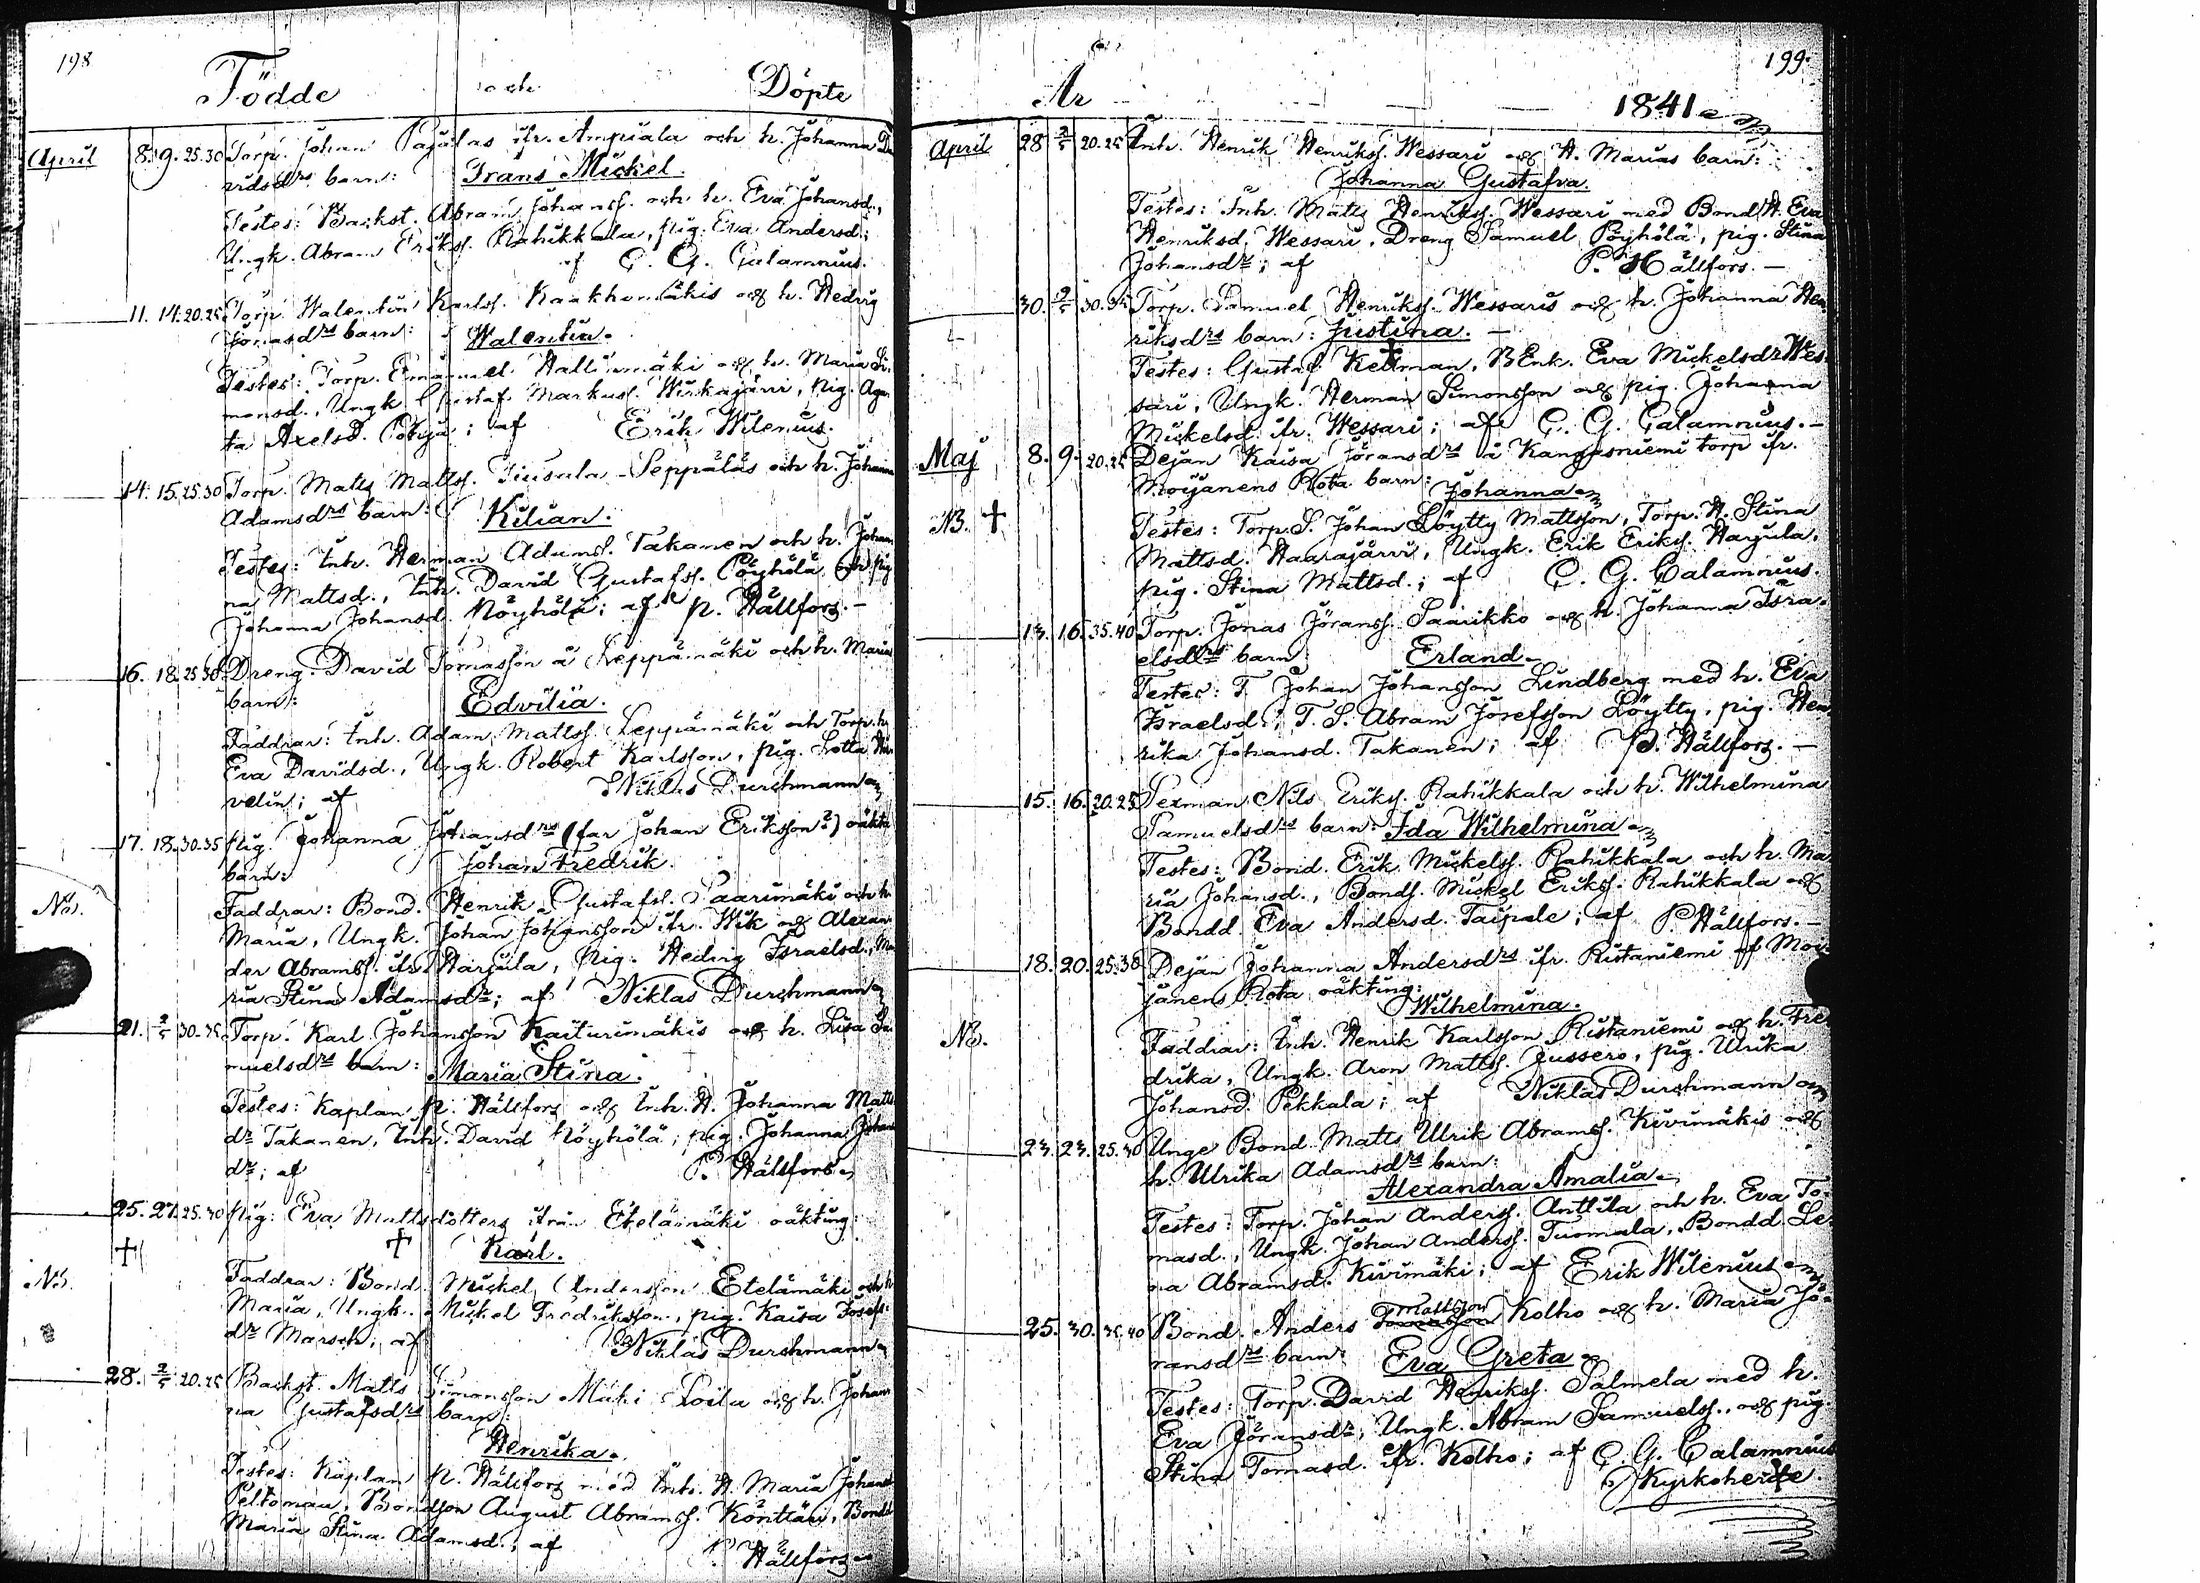 198
Födde och Döpte
April 8. 9. 25.30 Torp. Johan Pajulas ifr. Ampiala och h. Johanna Da
vidsdrs barn: Frans Mickel.
Testes: Backst. Abram Johanss. och h. Eva Johansd.,
Ungk. Abram Erikss. Rahikkala, pig. Eva Andersd.;
af C. G. Calamnius.
11. 14. 20.25 Torp. Walentin Karlss. och h. Hedvig
Jonasdrs barn: Walentin.
Testes: Torp. Emanuel och h. Maria Si-
monsd., Ungk. Gustaf Markuss. Wirkajärvi, pig. Aga
ta Axelsd. ; af Erik Wilenius.
14. 15. 25.30 Torp. Matts Mattss. Seppäläs och h. Johanna
Adamsdrs barn: Kilian.
Testes: Inh. Herman Adamss. Takanen och h. Johan
na Mattsd., Inh. David Gustafss. Pöyhölä och pig
Johanna Johansd. Möyhölä; af P. Hällfors.
16. 18. 25.30 Dreng. David Tomasson å Leppämäki och h. Marias
barn: Edvilia.
Faddrar: Inh. Adam Mattss. Leppämäki och Torp. h.
Eva Davidsd., Ungk. Robert Karlsson, pig. Lotta
velin; af Niklas Durchmann
17. 18. 30.35 Pig. Johanna Johansdrs (far Johan Eriksson?) oäkta
barn: Johan Fredrik.
NB. Faddrar: Bond. Henrik Gustafss. Saarimäki och h.
Maria, Ungk. Johan Johansson ifr. Wik och Alexan
der Abramss. ifr. Harjula, pig. Hedvig Israelsd., Ma
ria Stina Adamsdr; af Niklas Durchmann
21. 2/5 30.35 Torp. Karl Johansson Kaiturimäkis och h. Lisa Sa
muelsdrs barn: Maria Stina.
Testes: Kaplan P. Hällfors och Inh. H. Johanna Matts
dr Takanen, Inh. David Möyhölä, pig. Johanna Johans
dr; af P. Hällfors
25. 27. 25.30 Pig. Eva Mattsdotters ifrån Etelämäki oäkting:
Karl.
NB. Faddrar: Bond. Mickel Andersson Etelämäki och h.
Maria, Ungk. Mickel Fredriksson, pig. Kaisa Josefs
dr Marsch; af Niklas Durchmann
28. 2/5 20.25 Backst. Matts Simonsson Mäki Loila och h. Johan
na Gustafsdrs barn:
Henrika.
Testes: Kaplan P. Hällfors med Inh. H. Maria Johansd
Peltomaa, Bondson August Abramss. Könttäri, Bondd
Maria Stina Adamsd.; af P. Hällfors
199.
År 1841
April 28 2/5 20.25 Inh. Henrik Henrikss. Wessari och H. Marias barn:
Johanna Gustafva.
Testes: Inh. Matts Henrikss. Wessari med Bond H. Eva
Henriksd. Wessari, Dreng Samuel Pöyhölä, pig. Stina
Johansdr; af P. Hällfors.
30. 9/5 30.35 Torp. Samuel Henrikss. Wessaris och h. Johanna Hen
riksdrs barn: Justina.
Testes: Gustaf Kellman, BEnk. Eva Mickelsdr Wes-
sari, Ungk. Herman Simonsson och pig. Johanna
Mickelsd. ifr. Wessari; af C. G. Calamnius.
Maj 8. 9. 20.25 Dejan Kaisa Jöransdrs å Kangasniemi torp ifr.
Moijanens Rota barn: Johanna
NB. Testes: Torp. S. Johan Löytty Mattsson, Torp. H. Stina
Mattsd. Haarajärvi, Ungk. Erik Erikss. Harjula,
pig. Stina Mattsd.; af C. G. Calamnius.
13. 16. 35.40 Torp. Jonas Jöranss. Saarikko och h. Johanna Isra-
elsdrs barn: Erland
Testes: T. Johan Johansson Lindberg med h. Eva
Israelsd., T. S. Abram Josefsson Löytty, pig. Hen
rika Johansd. Takanen; af P. Hällfors.
15. 16. 20.25 Sexman Nils Erikss. Rahikkala och h. Wilhelmina
Samuelsdrs barn: Ida Wilhelmina
Testes: Bond. Erik Mickelss. Rahikkala och h. Ma-
ria Johansd., Bonds. Mickel Erikss. Rahikkala och
Bondd. Eva Andersd. Taipale; af P. Hällfors.
18. 20. 25.30 Dejan Johanna Andersdrs ifr. Ristaniemi af Moi-
janens Rota oäkting: Wilhelmina.
NB. Faddrar: Inh. Henrik Karlsson Ristaniemi och h. Fre
drika, Ungk. Aron Mattss. Jussero, pig. Ulrika
Johansd. Pekkala; af Niklas Durchmann
23. 23. 25.30 Unge Bond. Matts Ulrik Abramss. Kivimäkis och
h. Ulrika Adamsdrs barn:
Alexandra Amalia
Testes: Torp. Johan Anderss. Anttila och h. Eva To-
masd., Ungk. Johan Anderss. Tuomala, Bondd. Le-
na Abramsd. Kivimäki; af Erik Wilenius
25. 30. 35.40 Bond. Anders Tomasson Mattsson Kolho och h. Maria Jö-
ransdrs barn: Eva Greta
Testes: Torp. David Henrikss. Salmela med h.
Eva Jöransdr, Ungk. Abram Samuelss., och pig.
Stina Tomasd. ifr. Kolho; af C. G. Calamnius
Kyrkoherde.